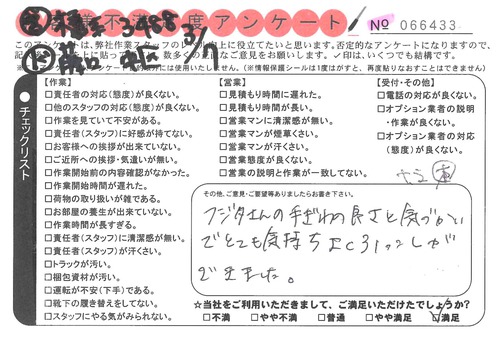 作業不満度アンケート
No 066433
3/1
このアンケートは、弊社作業スタッフの
に役立てたいと思います。否定的なアンケートになりますので、
数多くの
ご意見をお願いします。✓印は、いくつでも結構です。
使用いたしません。(※情報保護シールは1度はがすと、再度貼りなおすことはできません)
チェックリスト
【作業】
□責任者の対応(態度)が良くない。
□他のスタッフの対応(態度)が良くない。
□作業を見ていて不安がある。
□責任者(スタッフ)に好感が持てない。
□お客様への挨拶が出来ていない。
□ご近所への挨拶・気遣いが無い。
□作業開始前の内容確認がなかった。
□作業開始時間が遅れた。
□荷物の取り扱いが雑である。
□お部屋の養生が出来ていない。
□作業時間が長すぎる。
□責任者(スタッフ)に清潔感が無い。
□責任者(スタッフ)が汗くさい。
□トラックが汚い。
□梱包資材が汚い。
□運転が不安(下手)である。
□靴下の履き替えをしてない。
□スタッフにやる気がみられない。
【営業】
□見積もり時間に遅れた。
□見積もり時間が長い。
□営業マンに清潔感が無い。
□営業マンが煙草くさい。
□営業マンが汗くさい。
□営業態度が良くない。
□営業の説明と作業が一致してない。
【受付・その他】
□電話の対応が良くない。
□オプション業者の説明・作業が良くない。
□オプション業者の対応(態度)が良くない。
その他、ご意見・ご要望等ありましたらお書き下さい。
フジタさんの手ぎわの良さと気づかい
でとても気持ちよく引っこしが
できました。
☆当社をご利用いただきまして、ご満足いただけたでしょうか?
□不満 □やや不満 □普通 □やや満足 ☑満足